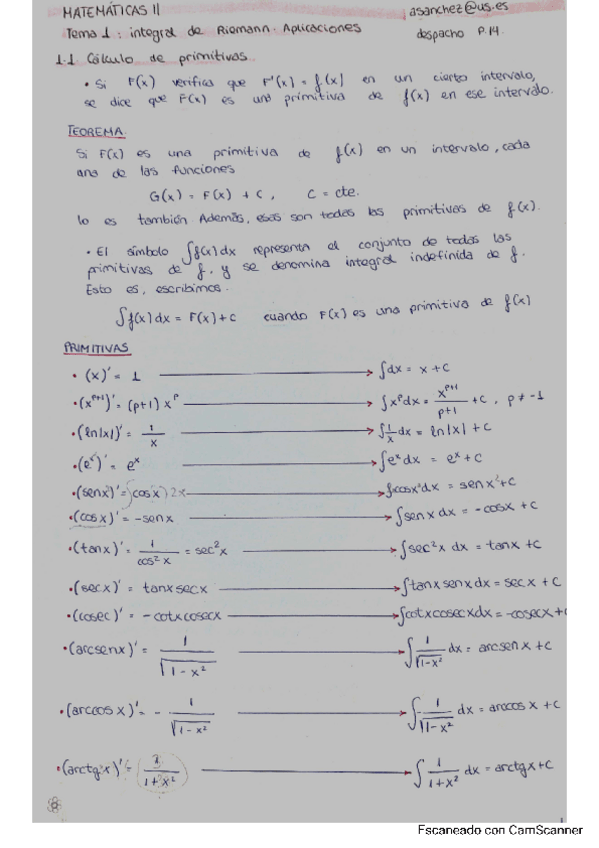 MATEMÁTICAS II asanchez@us.es
Tema 1: integral de Riemann. Aplicaciones despacho P.14.
1.1 Cálculo de primitivas
• Si F(x) verifica que F'(x) = f(x) en un cierto intervalo,
se dice que F(x) es una primitiva de f(x) en ese intervalo.
TEOREMA
Si F(x) es una primitiva de f(x) en un intervalo, cada
una de las funciones
G(x) = F(x) + C, C = cte.
lo es también Además, esas son todas las primitivas de f(x).
• El símbolo ∫f(x)dx representa al conjunto de todas las
primitivas de f. y se denomina integral indefinida de f.
Esto es, escribimos.
∫f(x)dx = F(x)+C cuando F(x) es una primitiva de f(x)
PRIMITIVAS
• (x)' = 1 → ∫dx = x + C
• (x^{p+1})' = (p+1) x^p → ∫x^p dx = x^{p+1}/(p+1) + C, p ≠ -1
• (ln|x|)' = 1/x → ∫1/x dx = ln|x| + C
• (e^x)' = e^x → ∫e^x dx = e^x + C
• (senx)' = (cosx) 2x → ∫cosx²dx = senx²+C
• (cosx)' = -senx → ∫senx dx = -cosx + C
• (tanx)' = 1/cos²x = sec²x → ∫sec²x dx = tanx + C
• (secx)' = tanx secx → ∫tanx senx dx = secx + C
• (cosec)' = -cotx cosecx → ∫cotx cosecx dx = -cosecx + C
• (arcsenx)' = 1/√(1-x²) → ∫1/√(1-x²) dx = arcsenx + C
• (arccosx)' = - 1/√(1-x²) → ∫1/√(1-x²) dx = arccosx + C
• (arctgx)' = 1/(1+x²) → ∫1/(1+x²) dx = arctgx + C
Escaneado con CamScanner